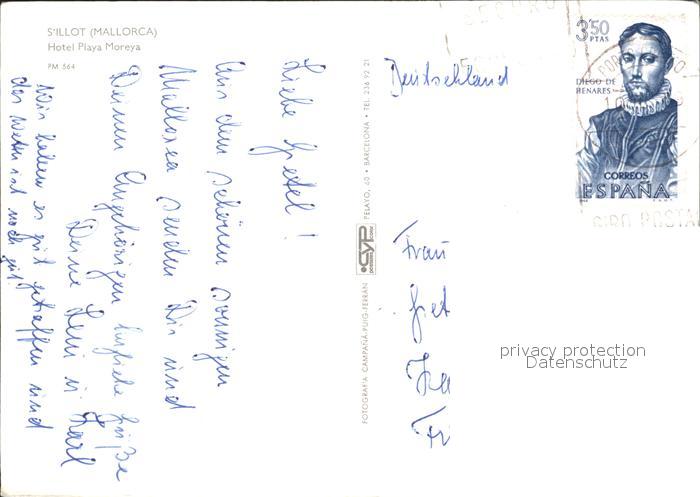 S'ILLOT (MALLORCA)
Hotel Playa Moreya
PM 564
Liebe Gretel!
Aus dem schönen sonnigen
Mallorca senden Dir und
Deinen Angehörigen herzliche Grüße
Deine Leni u. Karl
Wir haben es gut getroffen und
das Wetter ist noch gut.
FOTOGRAFIA CAMPAÑÁ-PUIG-FERRÁN
CYP
PELAYO, 60 • BARCELONA • TEL. 236 92 21
Deutschland
Frau
Fr
3'50
PTAS
DIEGO DE
HENARES
CORREOS
ESPAÑA
GIRO POSTAL
privacy protection
Datenschutz